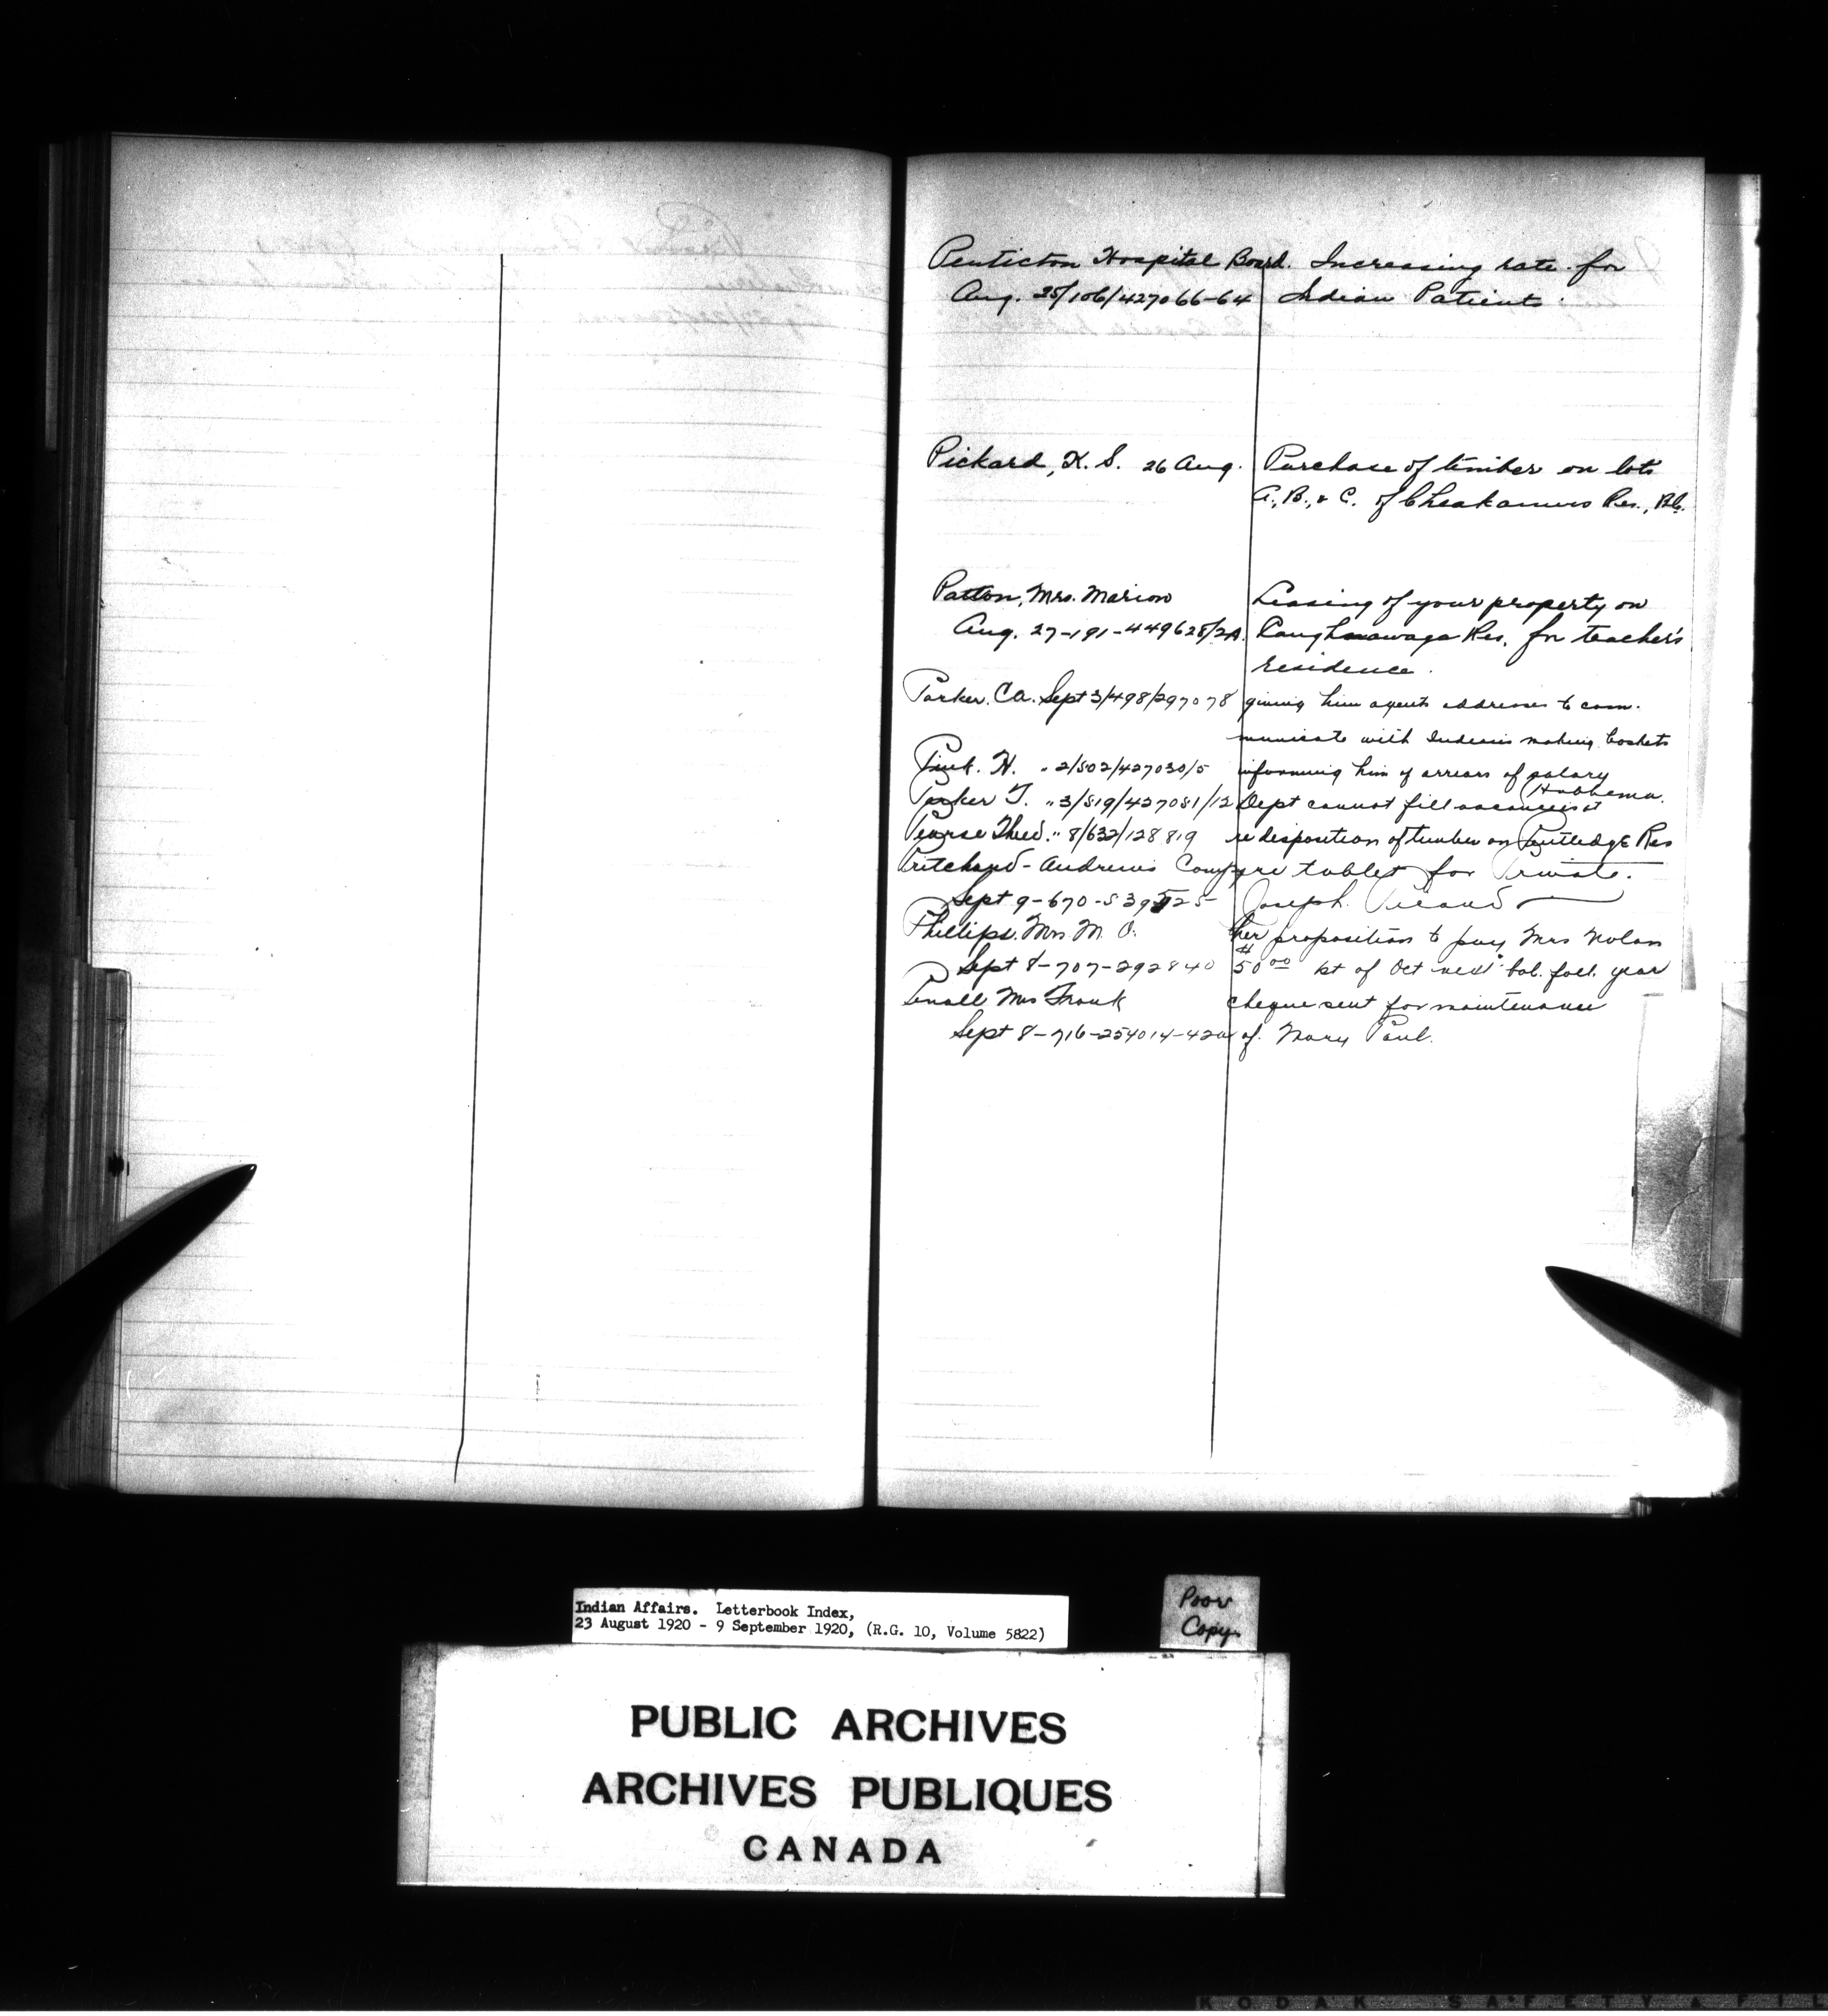 Penticton Hospital Board. Increasing rate for
Aug. 25/106/427066-64 Indian Patients.
Pickard, K. S. 26 Aug. Purchase of timber on lots
A., B., & C. of Cheakamus Res., B.C.
Patton, Mrs. Marion Leasing of your property on
Aug. 27-191-449628/2A. Caughnawaga Res. for teacher's
residence.
Parker. C.A. Sept 3/498/297078 giving him agents addresses to com-
municate with Indians making baskets
H. " 2/502/427030/5 informing him of arrears of salary
Parker T. " 3/519/427081/12 Dept cannot fill vacancies at Hobbema.
Pearse Theed. " 8/632/128819 re disposition of timber on Res
Pritchard-Andrews Company re tablet for Private.
Sept 9-670-539525 Joseph Picard
Phillips. Mrs. M. O. her proposition to pay Mrs Nolan
Sept 8-707-292840 $50.00 1st of Oct next bal. foll. year
Mrs Frank cheque sent for maintenance
Sept 8-716-254014-42 of Mary Paul.
Indian Affairs. Letterbook Index,
23 August 1920 - 9 September 1920, (R.G. 10, Volume 5822)
Poor
Copy
PUBLIC ARCHIVES
ARCHIVES PUBLIQUES
CANADA
KODAK SAFETY FIL